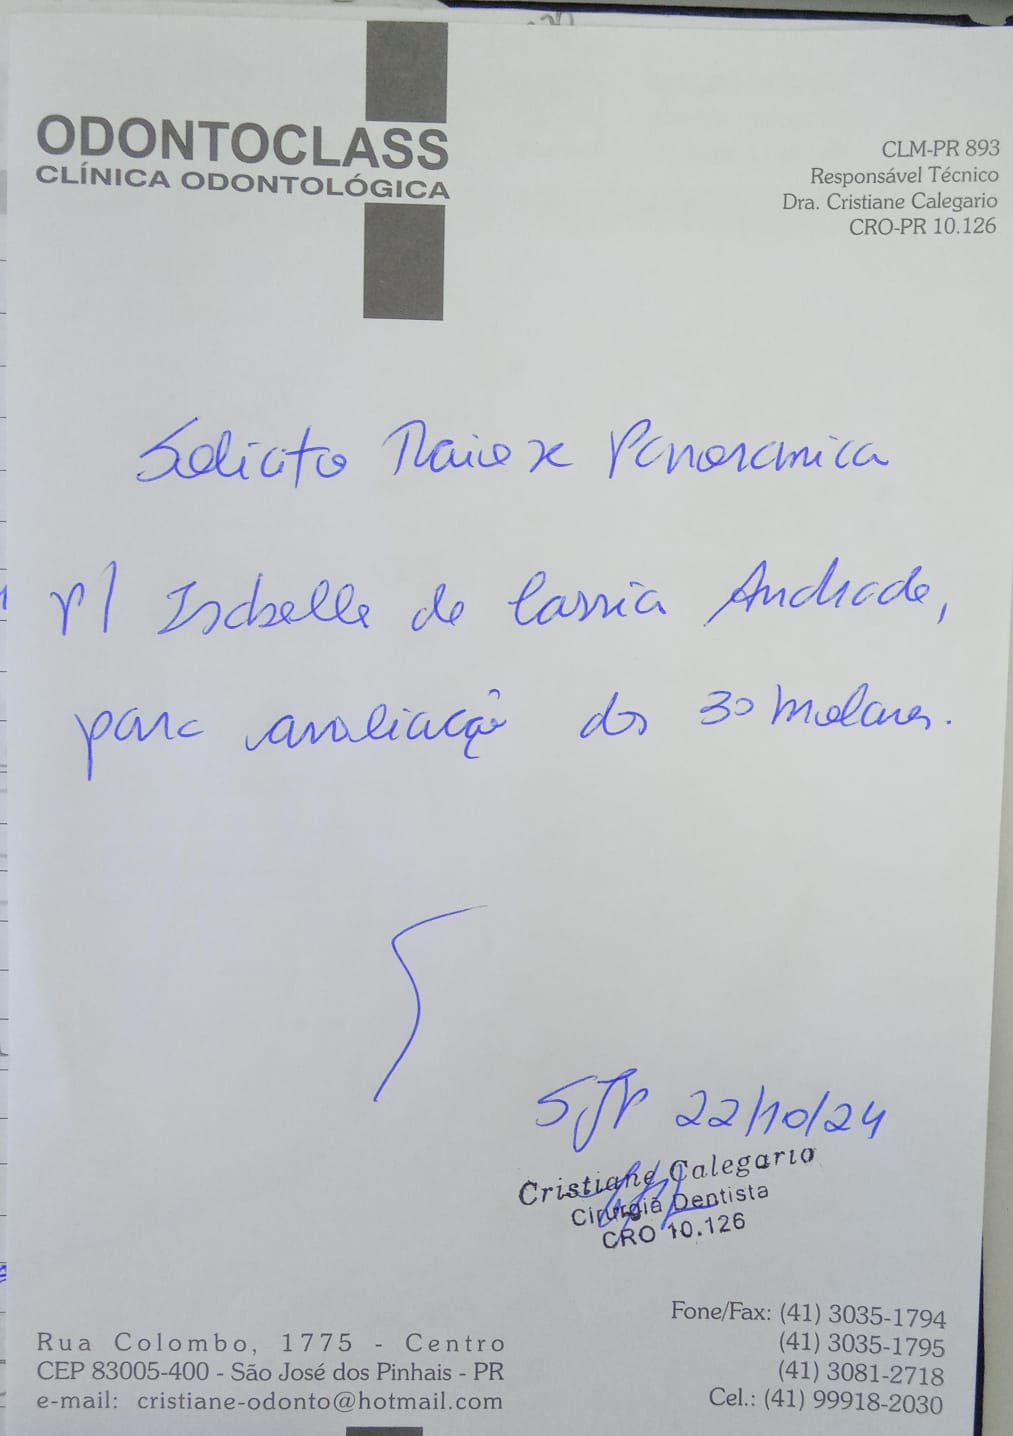 ODONTOCLASS
CLÍNICA ODONTOLÓGICA
CLM-PR 893
Responsável Técnico
Dra. Cristiane Calegario
CRO-PR 10.126
Solicito Raio x Panoramica
p/ Isabelle de Cassia Andrade,
para avaliação dos 3os molares.
SJP 22/10/24
Cristiane Calegario
Cirurgiã Dentista
CRO 10.126
Rua Colombo, 1775 - Centro
CEP 83005-400 - São José dos Pinhais - PR
e-mail: cristiane-odonto@hotmail.com
Fone/Fax: (41) 3035-1794
(41) 3035-1795
(41) 3081-2718
Cel.: (41) 99918-2030